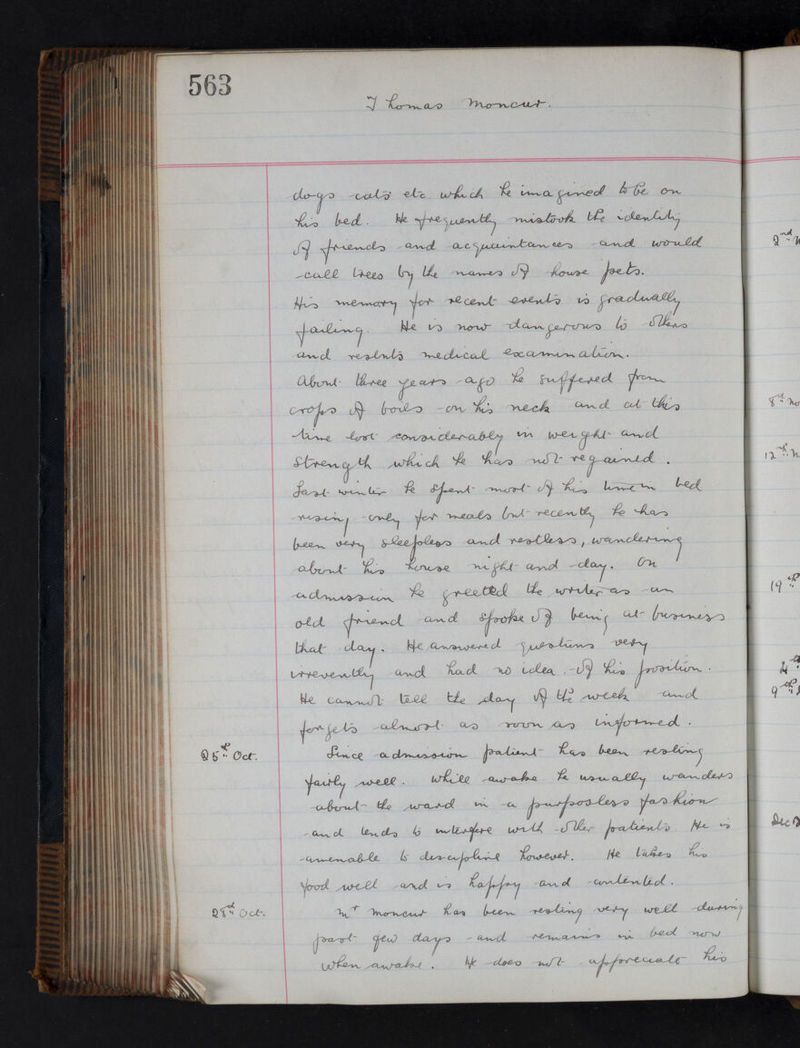 563
Thomas Moncur.
dogs cats etc which he imagined to be on
his bed. He frequently mistook the identity
of friends and acquaintances and would
call trees by the names of house pets.
His memory for recent events is gradually
failing. He is now dangerous to others
and resents medical examination.
About three years ago he suffered from
crops of boils on his neck and at this
time lost considerably in weight and
strength which he has not regained.
Last winter he spent most of his time in bed
rising only for meals but recently he has
been very sleepless and restless, wandering
about his house night and day. On
admission he greeted the writer as an
old friend and spoke of being at business
that day. He answered questions very
irrevently and had no idea of his position.
He cannot tell the day of the week and
forgets almost as soon as informed.
25th Oct. Since admission patient has been resting
fairly well. While awake he usually wanders
about the ward in a purposless fashion
and tends to interfere with other patients. He is
amenable to discipline however. He takes his
food well and is happy and contented.
28th Oct. Mr Moncur has been resting very well during
past few days and remains in bed now
when awake. He does not appreciate his
2nd
8th No
12th
19th
9th
Dec